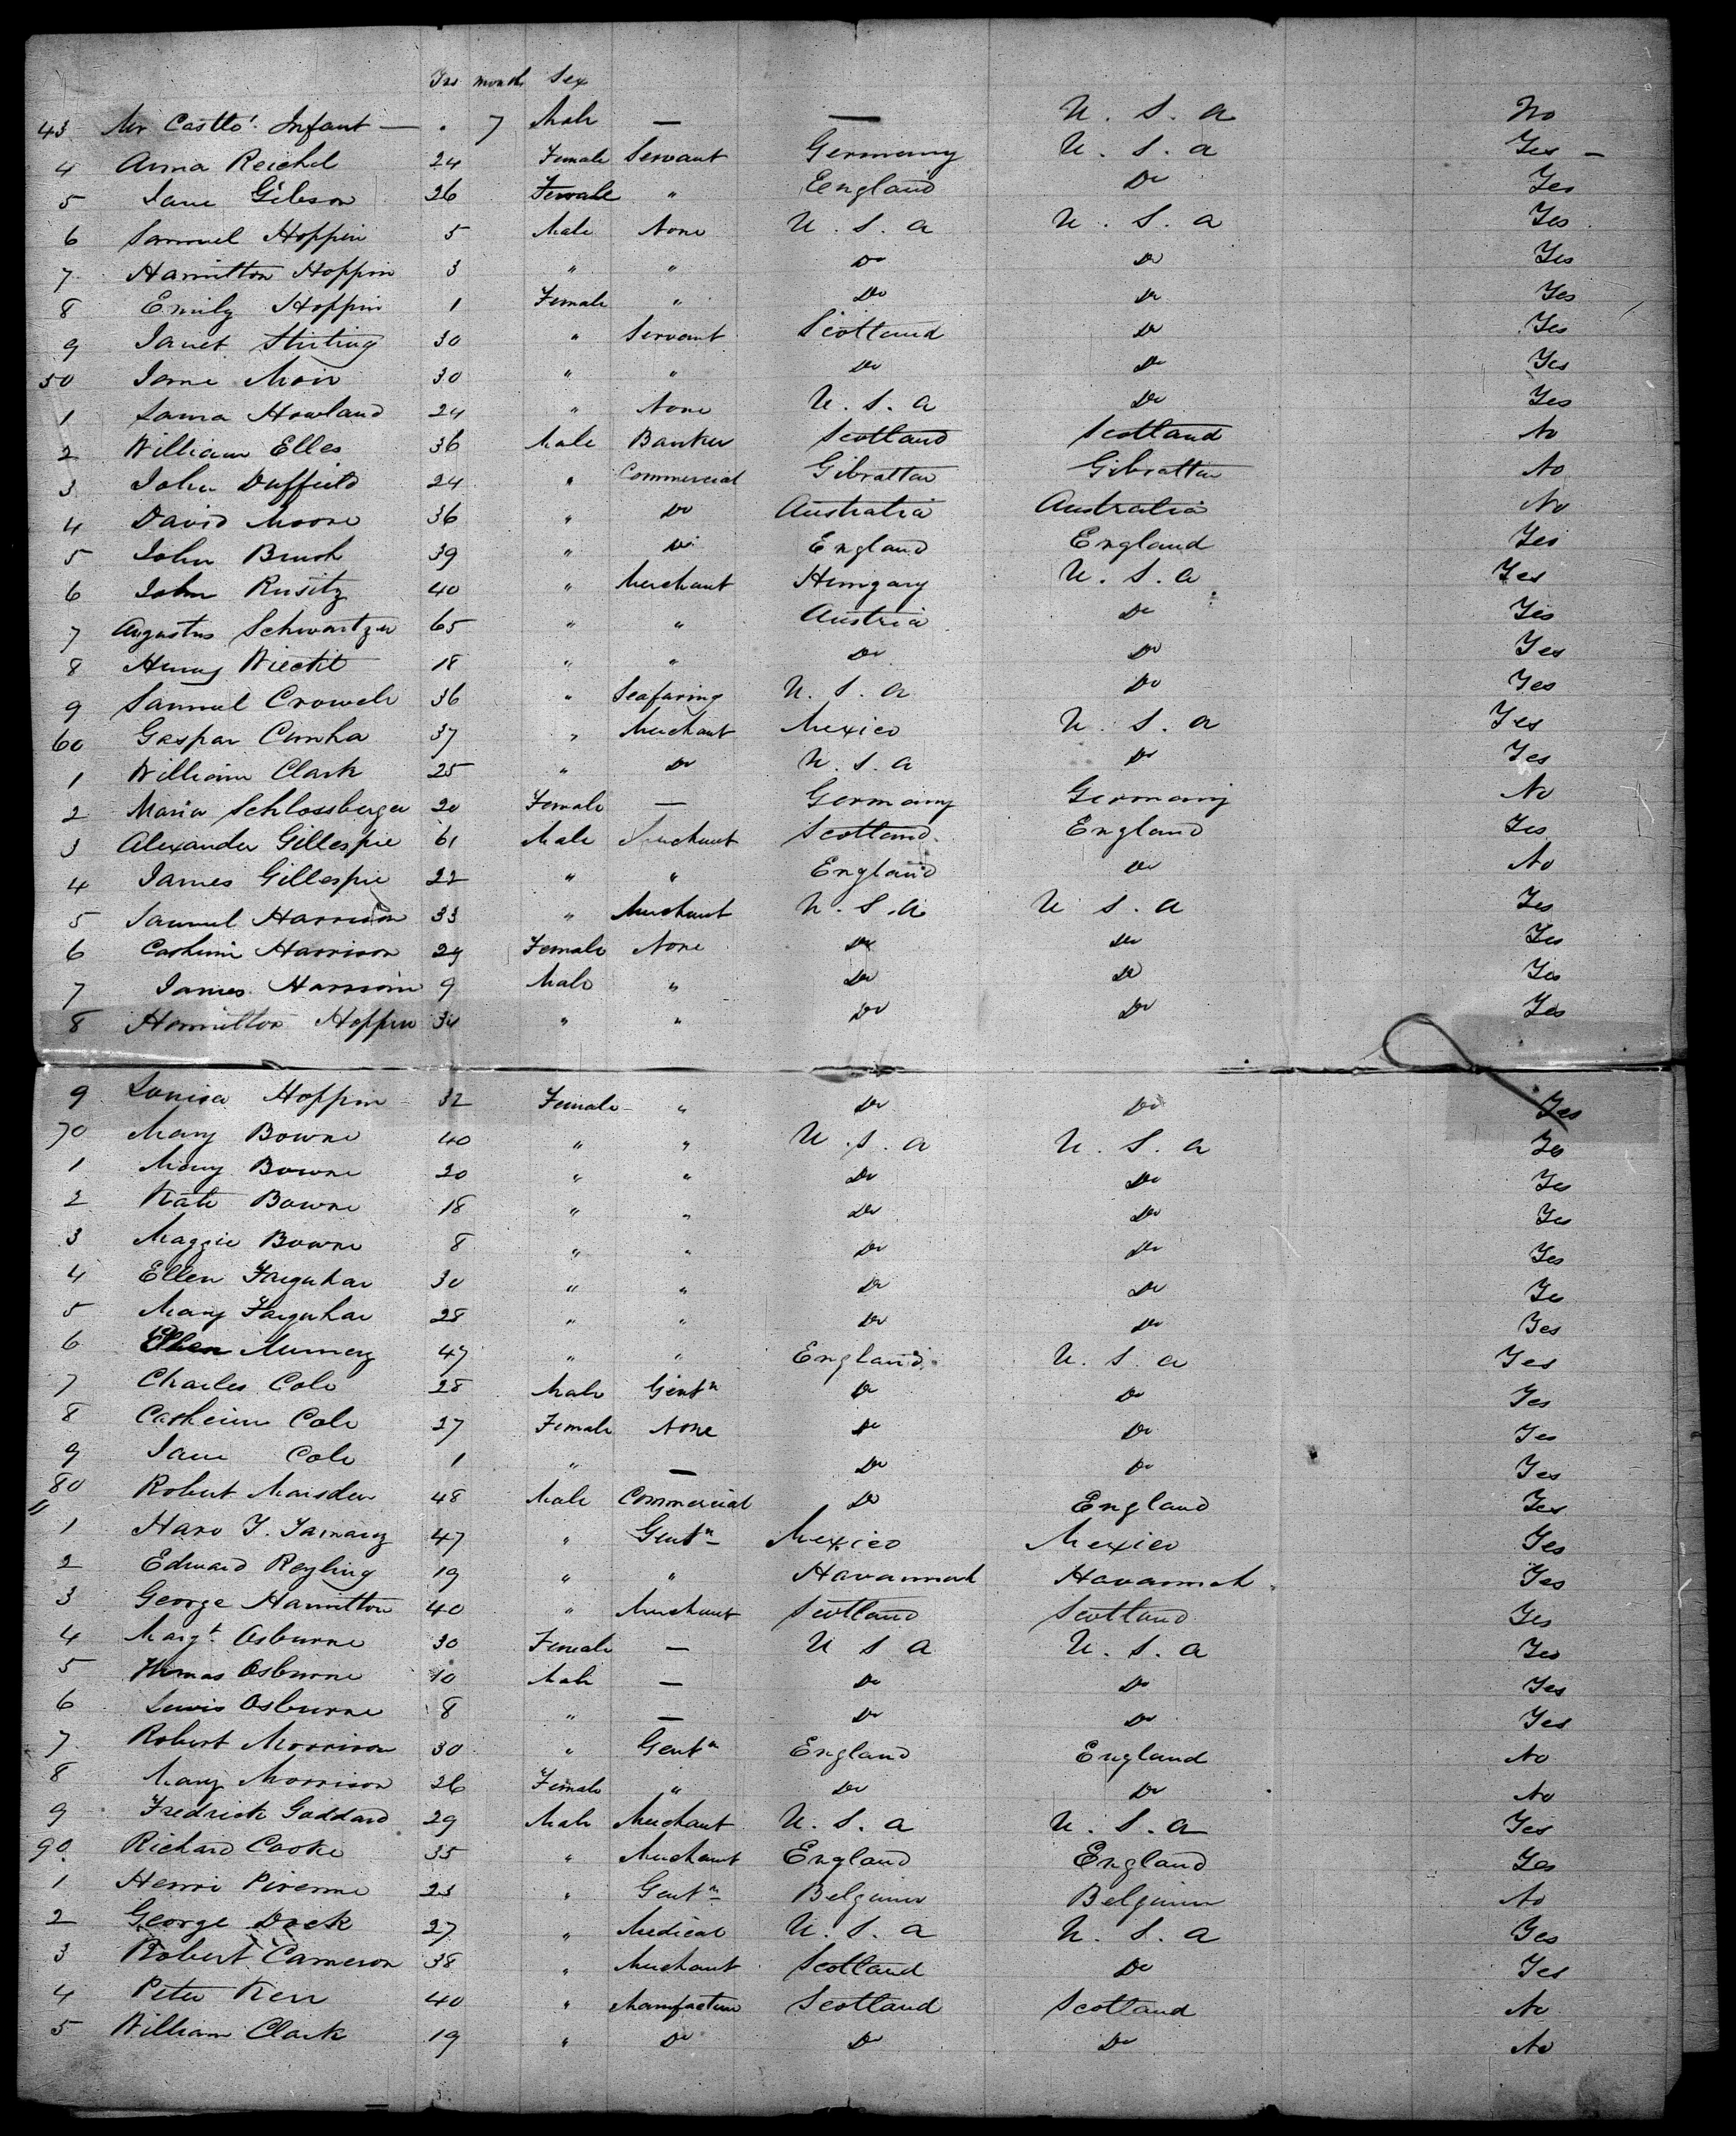 Yrs month Sex
43 Mr Castlo' Infant — . 7 Male — — U. S. a No
4 Anna Reichel 24 Female Servant Germany U. S. a Yes —
5 Jane Gibson 26 Female " Eengland Do Yes
6 Samuel Hoppin 5 Male None U. S. a U. S. a Yes
7 Hamilton Hoppin 3 " " Do Do Yes
8 Emily Hoppin 1 Female " Do Do Yes
9 Janet Stirling 30 " Servant Scotland Do Yes
50 Jane Moir 30 " " Do Do Yes
1 Laura Howland 24 " None U. S. a Do Yes
2 William Elles 36 Male Banker Scotland Scotland No
3 John Duffield 24 " Commercial Gibraltar Gibraltar No
4 David Moore 36 " Do Australia Australia No
5 John Brush 39 " Do England England Yes
6 John Rusitz 40 " Merchant Hungary U. S. a Yes
7 Augustus Schwartzer 65 " " Austria Do Yes
8 Henry Wiecht 18 " " Do Do Yes
9 Samuel Crowele 36 " Seafaring U. S. a Do Yes
60 Gaspar Cunha 37 " Merchant Mexico U. S. a Yes
1 William Clark 25 " Do U. S. a Do Yes
2 Maria Schlossberger 20 Female — Germany Germany No
3 Alexander Gillespie 61 Male Merchant Scotland England Yes
4 James Gillespie 22 " " England Do No
5 Samuel Harrison 33 " Merchant U. S. a U S. a Yes
6 Casherin Harrison 29 Female None Do Do Yes
7 James Harrison 9 Male " Do Do Yes
8 Hamilton Hoppin 34 " " Do Do Yes
9 Louisa Hoppin 32 Female " Do Do Yes
70 Mary Bowne 40 " " U. S. a U. S. a Yes
1 Mary Bowne 20 " " Do Do Yes
2 Kate Bowne 18 " " Do Do Yes
3 Maggie Bowne 8 " " Do Do Yes
4 Ellen Farquhar 30 " " Do Do Yes
5 Mary Farquhar 28 " " Do Do Yes
6 Ellen Mumery 47 " " England U. S. a Yes
7 Charles Cole 28 Male Gentn Do Do Yes
8 Casherin Cole 27 Female None Do Do Yes
9 Jane Cole 1 " — Do Do Yes
80 Robert Marsden 48 Male Commercial Do England Yes
1 Haro Y. Tamarez 47 " Gentn Mexico Mexico Yes
2 Edward Reyling 19 " " Havannah Havannah Yes
3 George Hamilton 40 " Merchant Scotland Scotland Yes
4 Margt Osburne 30 Female — U S a U. S. a Yes
5 Thomas Osburne 10 Male — Do Do Yes
6 Lewis Osburne 8 " — Do Do Yes
7 Robert Morrison 30 " Gentn England England No
8 Mary Morrison 26 Female " Do Do No
9 Fredrick Goddard 29 Male Merchant U. S. a U. S. a Yes
90 Richard Cooke 35 " Merchant England England Yes
1 Henri Pirenne 23 " Gentn Belgium Belgium No
2 George Dock 27 " Medical U. S. a U. S. a Yes
3 Robert Cameron 38 " Merchant Scotland Do Yes
4 Peter Kerr 40 " Manufacturer Scotland Scotland No
5 William Clark 19 " Do Do Do No